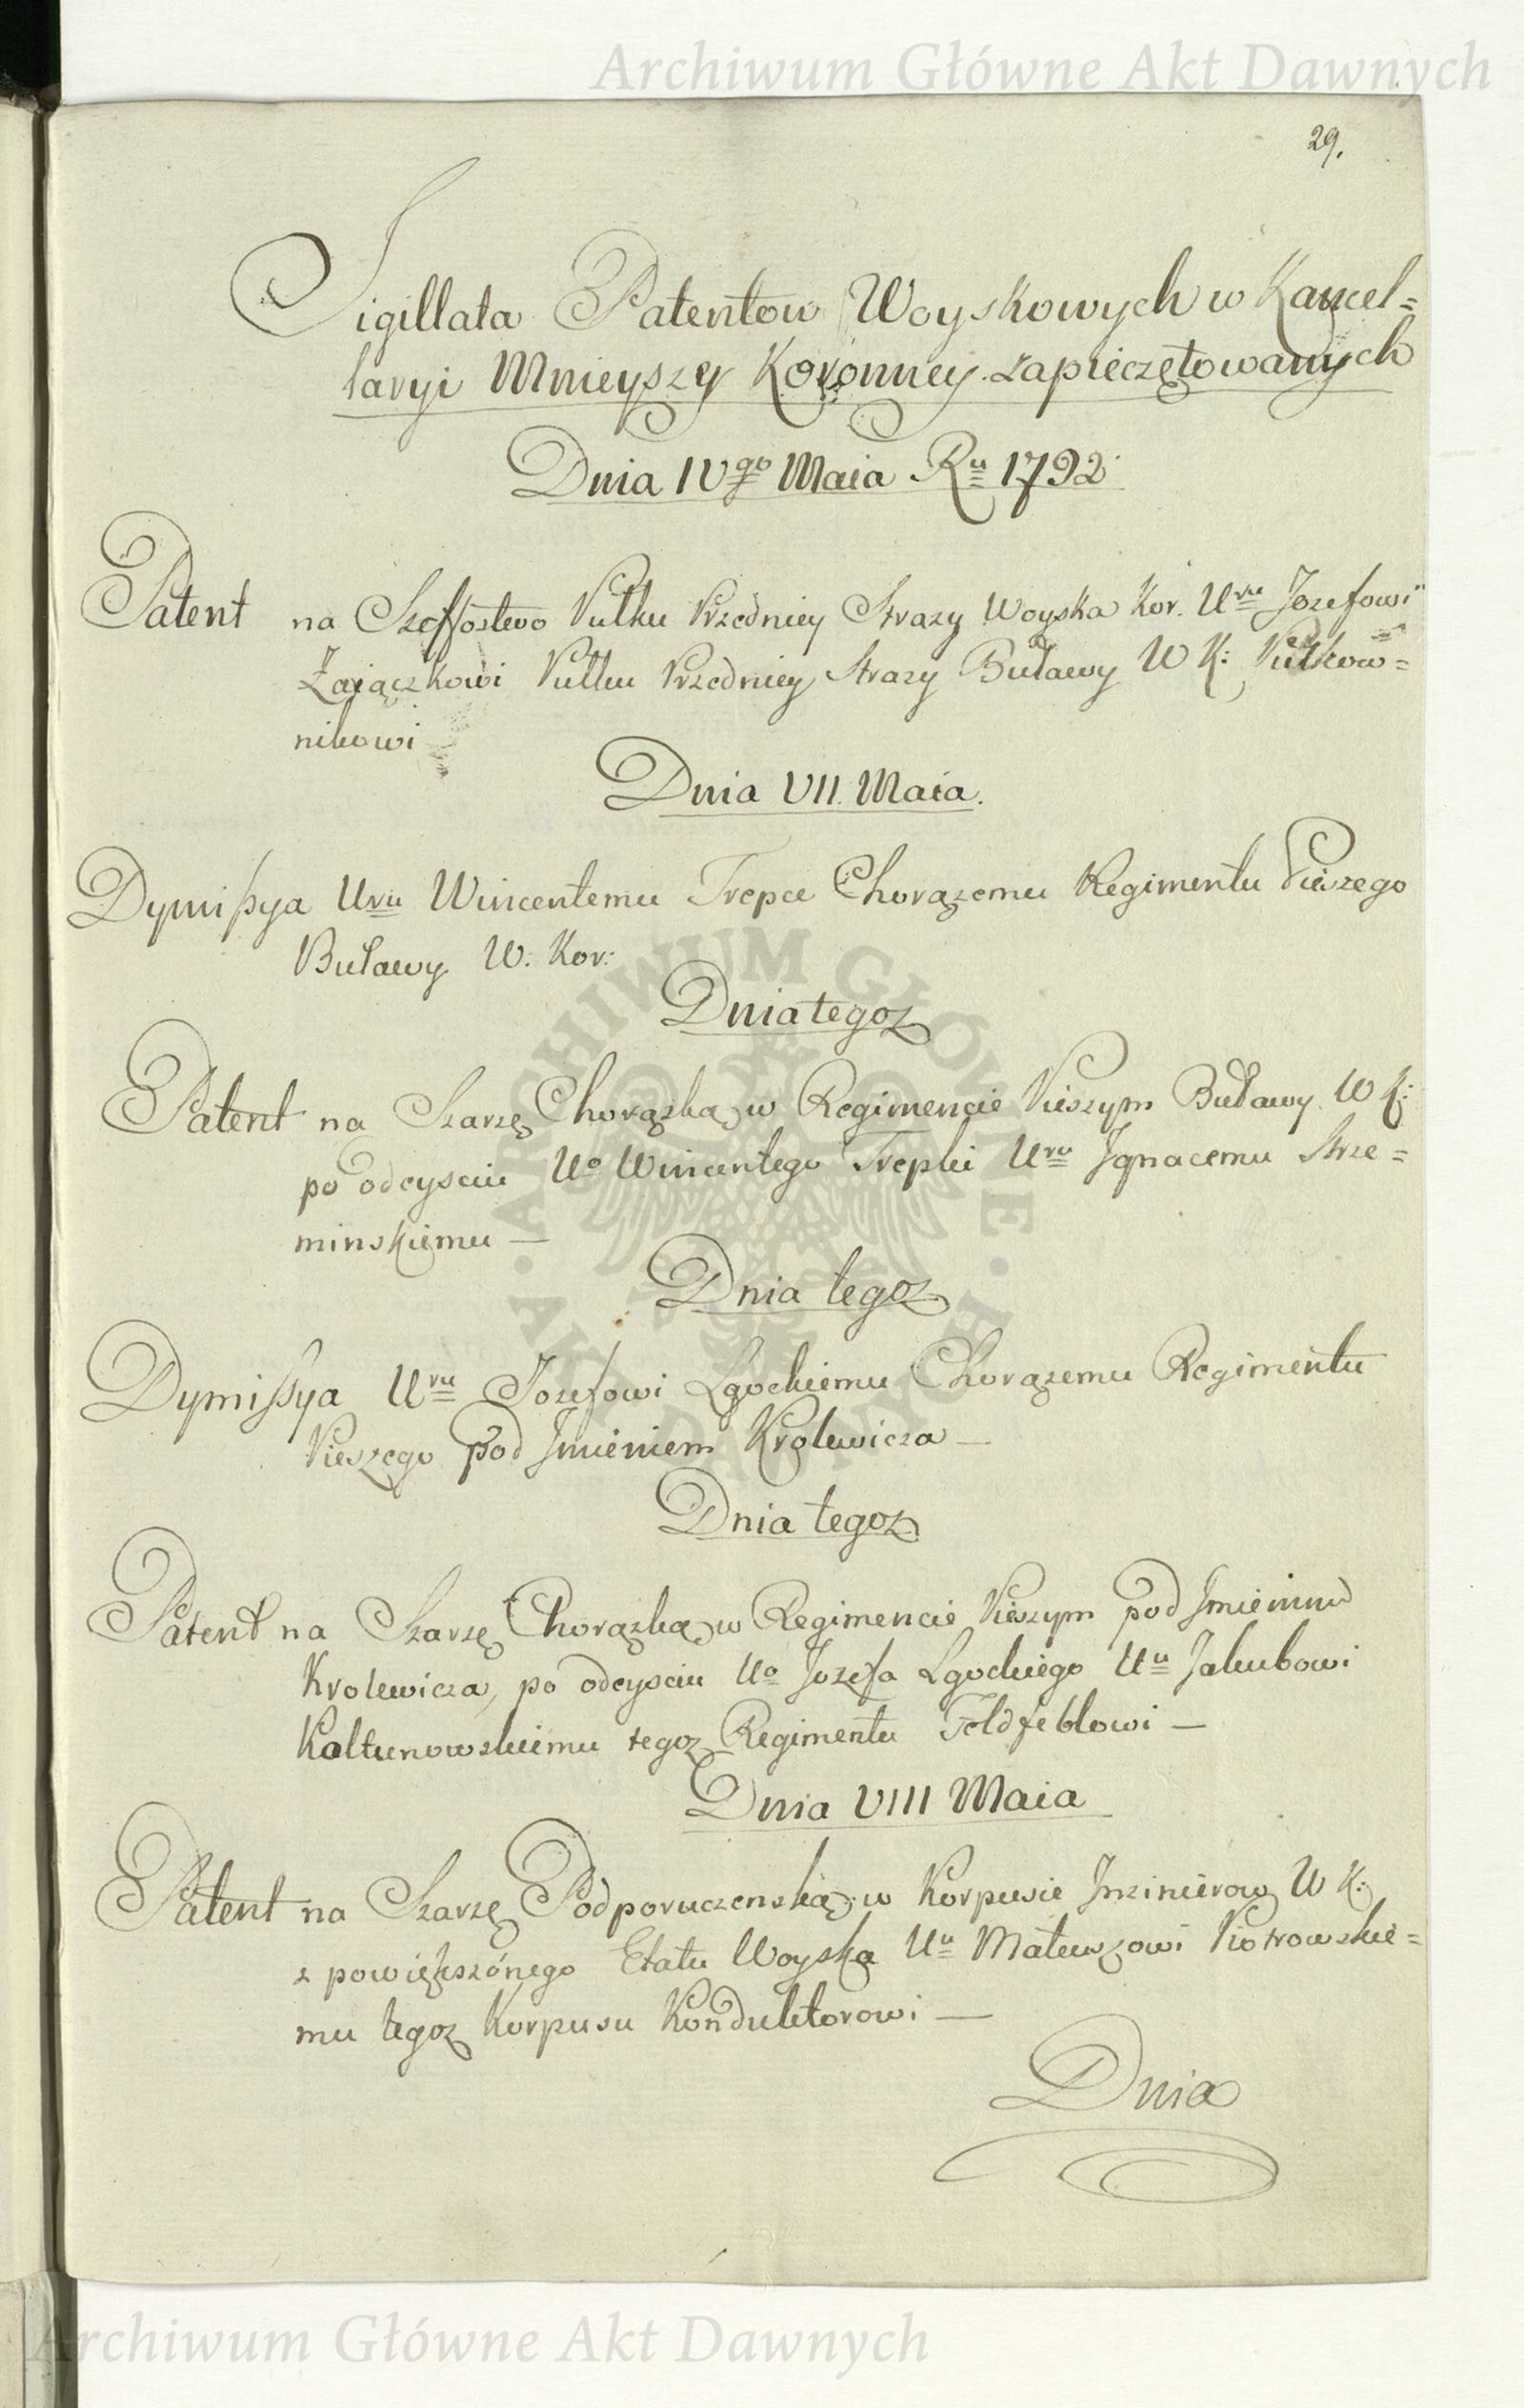 Archiwum Główne Akt Dawnych
29.
Sigillata Patentow Woyskowych w Kancel=
laryi Mnieyszey Koronney zapieczętowanych
Dnia IVgo Maia Ru 1792
Patent na Szeffostwo Pułku Przedniey Strazy Woyska Kor. Urnu Jozefowi
Zaiączkowi Pułku Przedniey Strazy Buławy W K: Pułkow=
nikowi
Dnia VII. Maia.
Dymissya Urnu Wincentemu Trepce Chorązemu Regimentu Pieszego
Buławy W: Kor:
Dnia tegoz
Patent na Szarzę Chorązką w Regimencie Pieszym Buławy W K:
po odeysciu Uo Wincentego Trepki Urnu Ignacemu Strze=
minskiemu —
Dnia tegoz
Dymissya Urnu Jozefowi Lgockiemu Chorązemu Regimentu
Pieszego pod Imieniem Krolewicza —
Dnia tegoz
Patent na Szarzę Chorązką w Regimencie Pieszym pod Imieniem
Krolewicza, po odeysciu Uo Jozefa Lgockiego Uu Jakubowi
Kałtunowskiemu tegoz Regimentu Feldfeblowi —
Dnia VIII Maia
Patent na Szarzę Podporuczenską w Korpusie Inzinierow W K:
z powiększonego Etatu Woyska Uu Mateuszowi Piotrowskie=
mu tegoz Korpusu Konduktorowi —
Dnia
ARCHIWUM GŁÓWNE · AKT DAWNYCH ·
Archiwum Główne Akt Dawnych